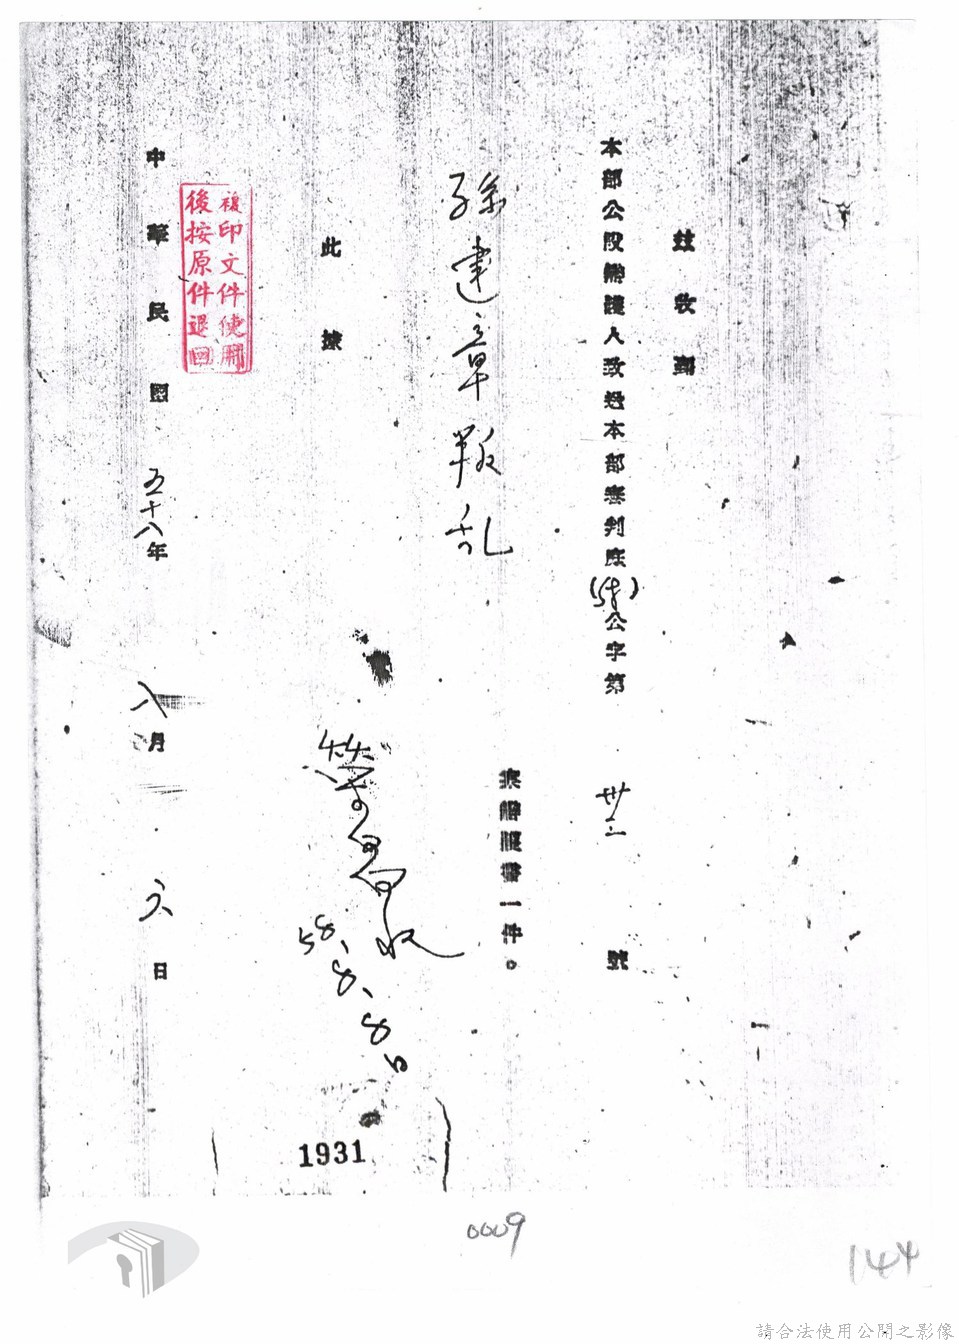 茲收到
本部公設辯護人致送本部審判庭(58)公字第卅二號
孫建章叛乱
案辯護書一件。
此據
收
58、8、8日
複印文件使用
後按原件退回
中華民國五十八年八月六日
1931
0009
144
請合法使用公開之影像